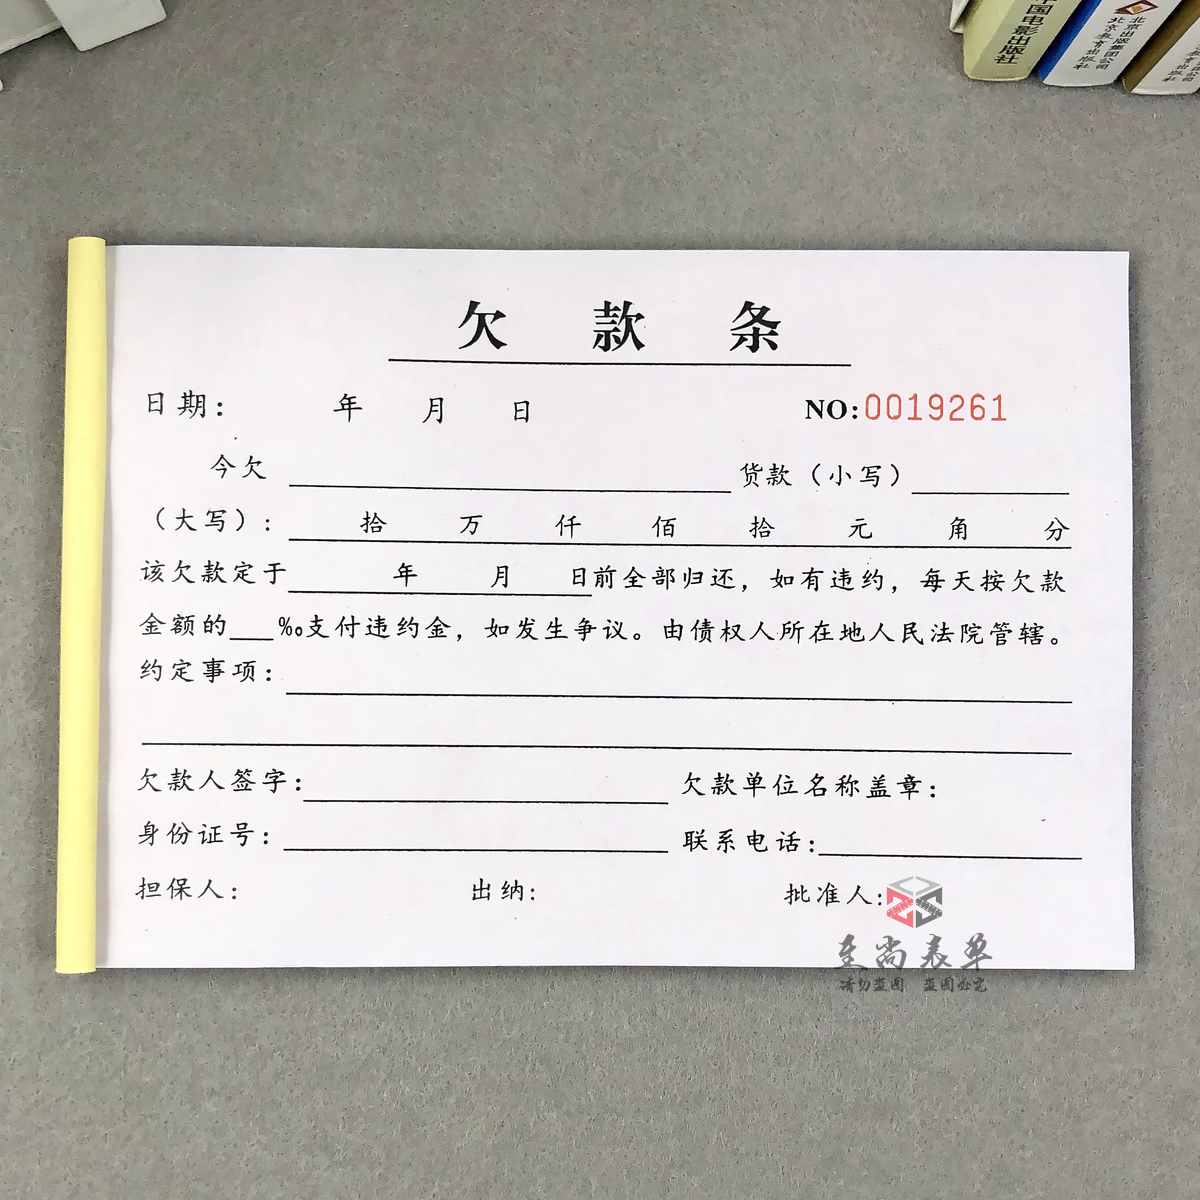 中国电影出版社
北京出版集团公司
北京教育出版社
欠款条
日期： 年 月 日 NO:0019261
今欠 货款（小写）
（大写）： 拾 万 仟 佰 拾 元 角 分
该欠款定于 年 月 日前全部归还，如有违约，每天按欠款
金额的___‰支付违约金，如发生争议。由债权人所在地人民法院管辖。
约定事项：
欠款人签字： 欠款单位名称盖章：
身份证号： 联系电话：
担保人： 出纳： 批准人：
至尚表单
请勿盗图 盗图必究